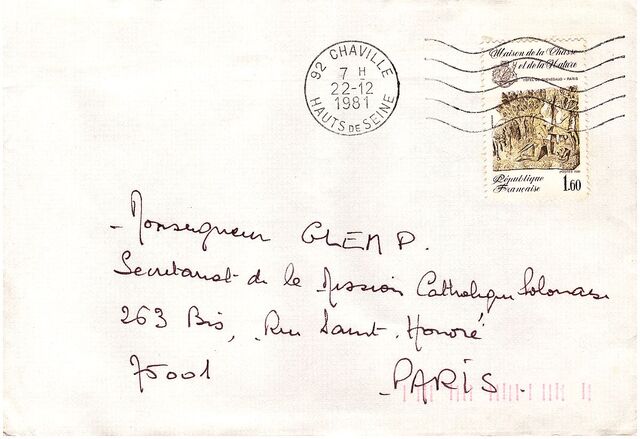 92 CHAVILLE
7 H
22-12
1981
HAUTS DE SEINE
Maison de la Chasse
et de la Nature
HOTEL DE GUENEGAUD - PARIS
République
Française
1.60
Monseigneur GLEMP.
Secretariat de la Mission Catholique Polonaise
263 Bis, Rue Saint-Honoré
75001 PARIS.